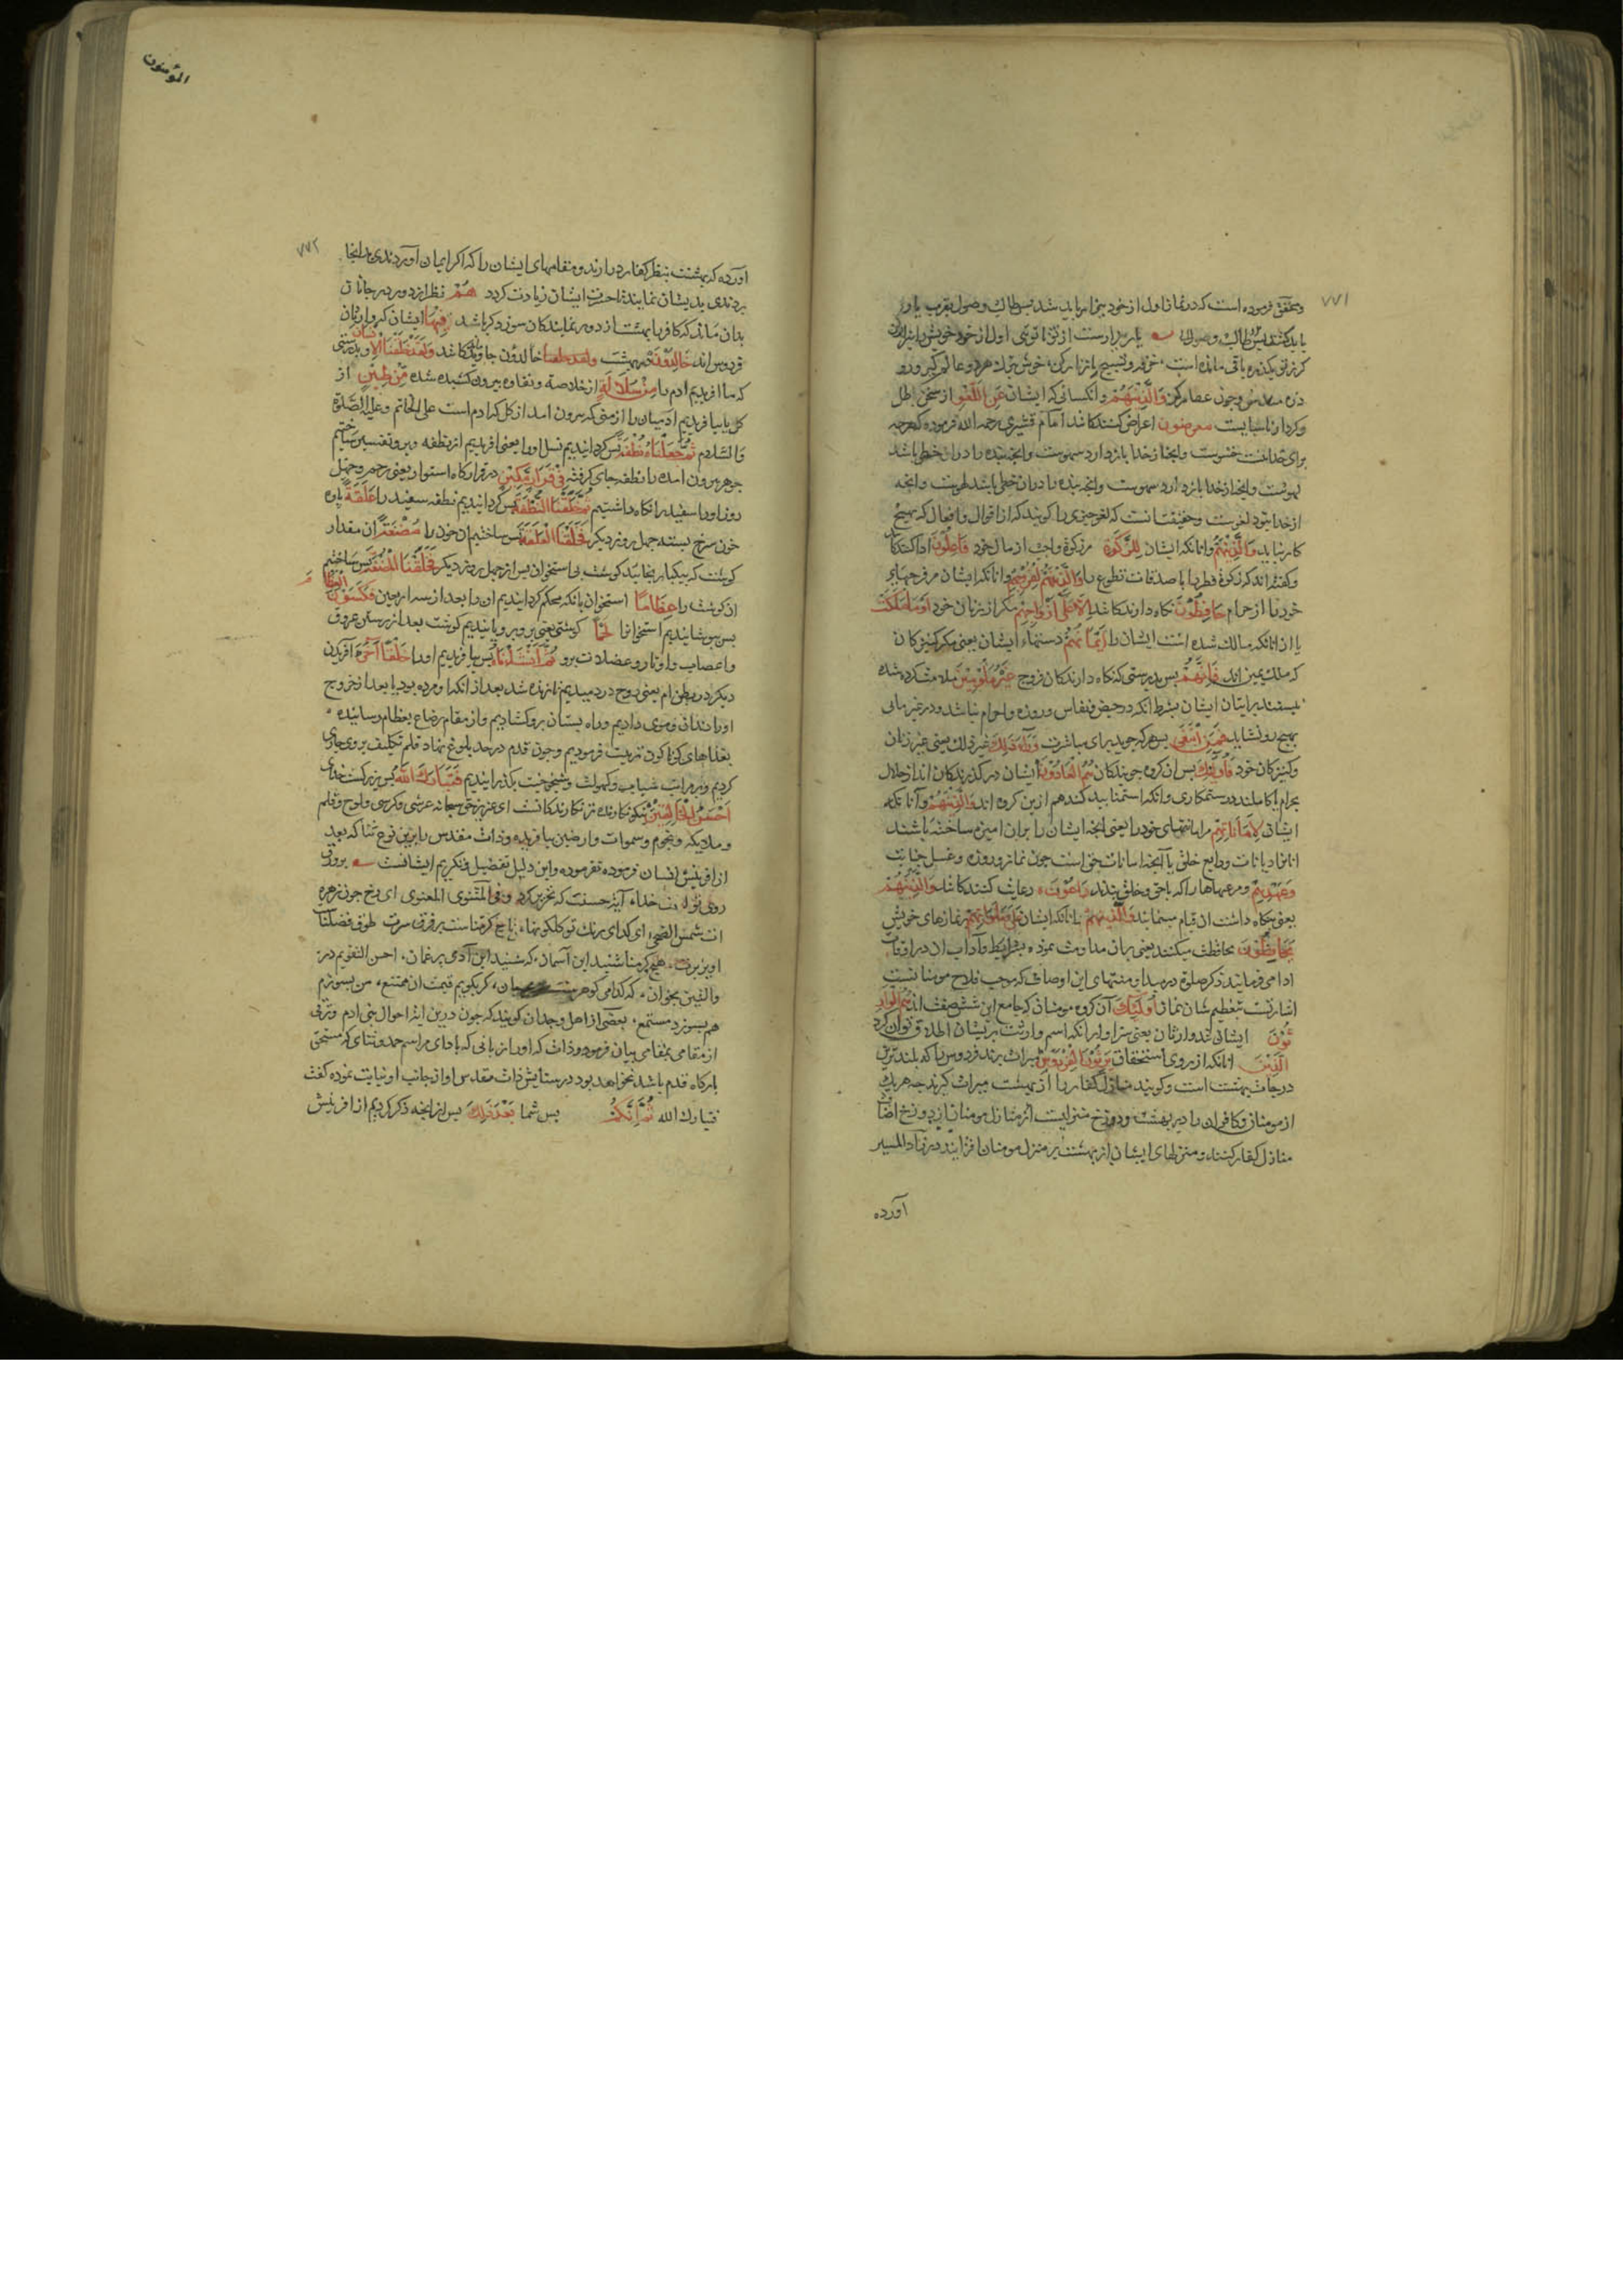 ۷۷۱
و محقق فرموده است که در نماز اول از خود بیزار باید شد پس طالب وصول بقرب یا ور
باید کشید پس طالب وصول یار بیزارست از تو تا توئی اول از خود خویش را بیزار کن
کر ز تو یکذره باقی مانده است خرقه و تسبیح با زنار کن
وجود عطار کن وَالَّذِینَ هُمْ و انکسانی که ایشان عَنِ اللَّغْوِ از سخن باطل
و کردار ناشایست مُعْرِضُونَ اعراض کنندکانند امام قشیری رحمه الله فرموده که هرچه
برای خداست خشوست و انچه از خدا باز دارد سهوست و انچه بنده را دران حظی باشد
لهوست و انچه از خدا باز دارد سهوست و انچه بنده را دران حظی باشد لهوست و انچه
از خدا بود لغوست و حقیقت انست که لغو چیزی را کویند که از اقوال و افعال که بهیچ
کار نیاید وَالَّذِینَ هُمْ و انانکه ایشان لِلزَّکٰوةِ مر زکوة واجب از مال خود فَاعِلُونَ ادا کنندکا
و کفته اند که زکوة فطر یا صدقات تطوع را وَالَّذِینَ هُمْ لِفُرُوجِهِمْ و انانکه ایشان مر فرجهای
خود را از حرام حَافِظُونَ نکاه دارندکانند اِلَّا عَلٰی اَزْوَاجِهِمْ مکر از زنان خود اَوْ مَا مَلَکَتْ
یا از انانکه مالک شده است ایشان را اَیْمَانُهُمْ دستهاء ایشان یعنی مکر کنیزکان
که ملک یمین اند فَاِنَّهُمْ پس بدرستی که نکاه دارندکان فروج غَیْرُ مَلُومِینَ ملامت کرده شده
نیستند بر ایشان بشرط انکه در حیض و نفاس و روزه و احرام نباشد و در غیر مانی
بهیچ رو نشاید فَمَنِ ابْتَغٰی پس هر که جوید برای مباشرت وَرَاءَ ذٰلِکَ غیر ذلک یعنی غیر زنان
و کنیزکان خود فَاُولٰئِکَ پس ان کروه جویندکان هُمُ الْعَادُونَ ایشان درکذرندکان اند از حلال
بحرام یا کاملند در ستمکاری و انکه استمنا بید کند هم ازین کروه اند وَالَّذِینَ هُمْ و آنانکه
ایشان لِاَمَانَاتِهِمْ مر امانتهای خود را یعنی انچه ایشان را بران امین ساخته باشند
از امانات و ودایع خلق یا آنچه امانات حق است چون نماز و روزه و غسل جنابت
وَعَهْدِهِمْ و مر عهدها را که با حق و خلق بندند رَاعُونَ رعایت کنندکانند وَالَّذِینَ هُمْ
وَالَّذِینَ هُمْ و انانکه ایشان عَلٰی صَلَوَاتِهِمْ بر نمازهای خویش
یُحَافِظُونَ محافظت میکنند یعنی بران مداومت نموده بشرایط و آداب ان در اوقات
ادا می فرمایند ذکر صلوة در مبدا و منتهای این اوصاف که موجب فلاح مومنانست
اشارتست بتعظیم شان نماز اُولٰئِکَ آن کروه مومنان که جامع این شش صفت اند هُمُ الْوَارِ
ثُونَ ایشانند وارثان یعنی سزاوار انکه اسم وارث بریشان اطلاق توان کرد
اَلَّذِینَ انانکه از روی استحقاق یَرِثُونَ الْفِرْدَوْسَ میراث برند فردوس را که بلندترین
درجات بهشت است و کویند منازل کفار را از بهشت میراث کیرند چه هر یک
از مومنان و کافران را در بهشت و دوزخ منزلیست اثر منازل مومنان از دوزخ اضافت
منازل کفار کنند و منزلهای ایشان از بهشت بر منزل مومنان افزایند و در زاد المسیر
آورده
المؤمنون
۷۷۲
آورده که بهشت بنظر کفار درارند و مقامهای ایشان را که اکر ایمان آوردندی بدانجا
بردندی بدیشان نمایند تا حسرت ایشان زیادت کردد هُمْ نظر از دور در جانان
بدان ماند که کافر بهشت از دور نمایندکان سوز دکر باشد فِیهَا ایشان که وارثان
فردوس اند خَالِدُونَ در بهشت جاویدکانند وَلَقَدْ خَلَقْنَا الْاِنْسَانَ و بدرستی
که ما افریدیم ادم را مِنْ سُلَالَةٍ از خلاصه و نقاوه بیرون کشیده شده مِنْ طِینٍ از
کل یا بیافریدیم آدمیان را از منی که بیرون امد از کل که ادم است علی الخاتم و علیه الصلوة
والسلام ثُمَّ جَعَلْنَاهُ نُطْفَةً پس کردانیدیم نسل او را یعنی افریدیم از نطفه
جوهر بیرون امده را نطفه جای کرفته فِی قَرَارٍ مَکِینٍ در قرارکاه استوار یعنی رحم و چهل
روز او را سفید نکاه داشتیم ثُمَّ خَلَقْنَا النُّطْفَةَ پس کردانیدیم نطفه سفید را عَلَقَةً پاره
خون سرخ بسته چهل روز دیکر فَخَلَقْنَا الْعَلَقَةَ پس ساختیم ان خون را مُضْغَةً ان مقدار
کوشت که بیکبار بخایند کوشت بی استخوان پس از چهل روز دیکر فَخَلَقْنَا الْمُضْغَةَ پس ساختیم
ان کوشت را عِظَامًا استخوان بانکه محکم کردانیدیم ان را بعد از سه اربعین فَکَسَوْنَا الْعِظَامَ
پس پوشانیدیم استخوانرا لَحْمًا کوشتی یعنی برو رویانیدیم کوشت بعد از رستن عروق
و اعصاب و اوتار و عضلات برو ثُمَّ اَنْشَاْنَاهُ پس بیافریدیم او را خَلْقًا اٰخَرَ آفریدن
دیکر در بطن ام یعنی روح درو دمیدیم تا زنده شد بعد از انکه مرده بود یا بعد از خروج
او را دندان و موی دادیم و راه پستان برو کشادیم و از مقام رضاع بفطام رسانیده
بغذاهای کوناکون تربیت فرمودیم و چون قدم در حد بلوغ نهاد قلم تکلیف بروی جاری
کردیم و بر مراتب شباب و کهولت و شیخوخیت بکذرانیدیم فَتَبَارَکَ اللّٰهُ پس بزرکست خدای
اَحْسَنُ الْخَالِقِینَ نیکو نکارنده تر نکارندکانست ای عزیز حق سبحانه عرش و کرسی و لوح و قلم
و ملایکه و نجوم و سموات و ارضین بیافریده و ذات مقدس را برین نوع ثنا که بعد
از افرینش انسان فرموده نفرموده و این دلیل تفضیل و تکریم ایشانست بر ورق
روی خداء آیة حسنت که تحریر کرد وفی المثنوی المعنوی ای رخ چون زهره
ات شمس الضحی ای کدای رنک تو کلکونها تاج کرمناست بر فرق سرت طوق فضلنا
اویز برت هیچ کرمنا شنید این آسمان که شنید این آدمی پر غمان احسن التقویم در
والتین بخوان که کرامی کوهرست جان کر بکویم قیمت ان ممتنع من بسوزم
هم بسوزد مستمع بعضی از اهل وجدان کویند که چون درین ایه احوال بنی ادم و ترقی
از مقامی بمقامی بیان فرمود و دانست که او را زبانی که بادای مراسم حمد و ثنای که مستحق
بارکاه قدم باشد نخواهد بود در ستایش ذات مقدس او از جانب او نیابت نموده کفت
فتبارک الله ثُمَّ اِنَّکُمْ پس شما بَعْدَ ذٰلِکَ پس از انچه ذکر کردیم از افرینش